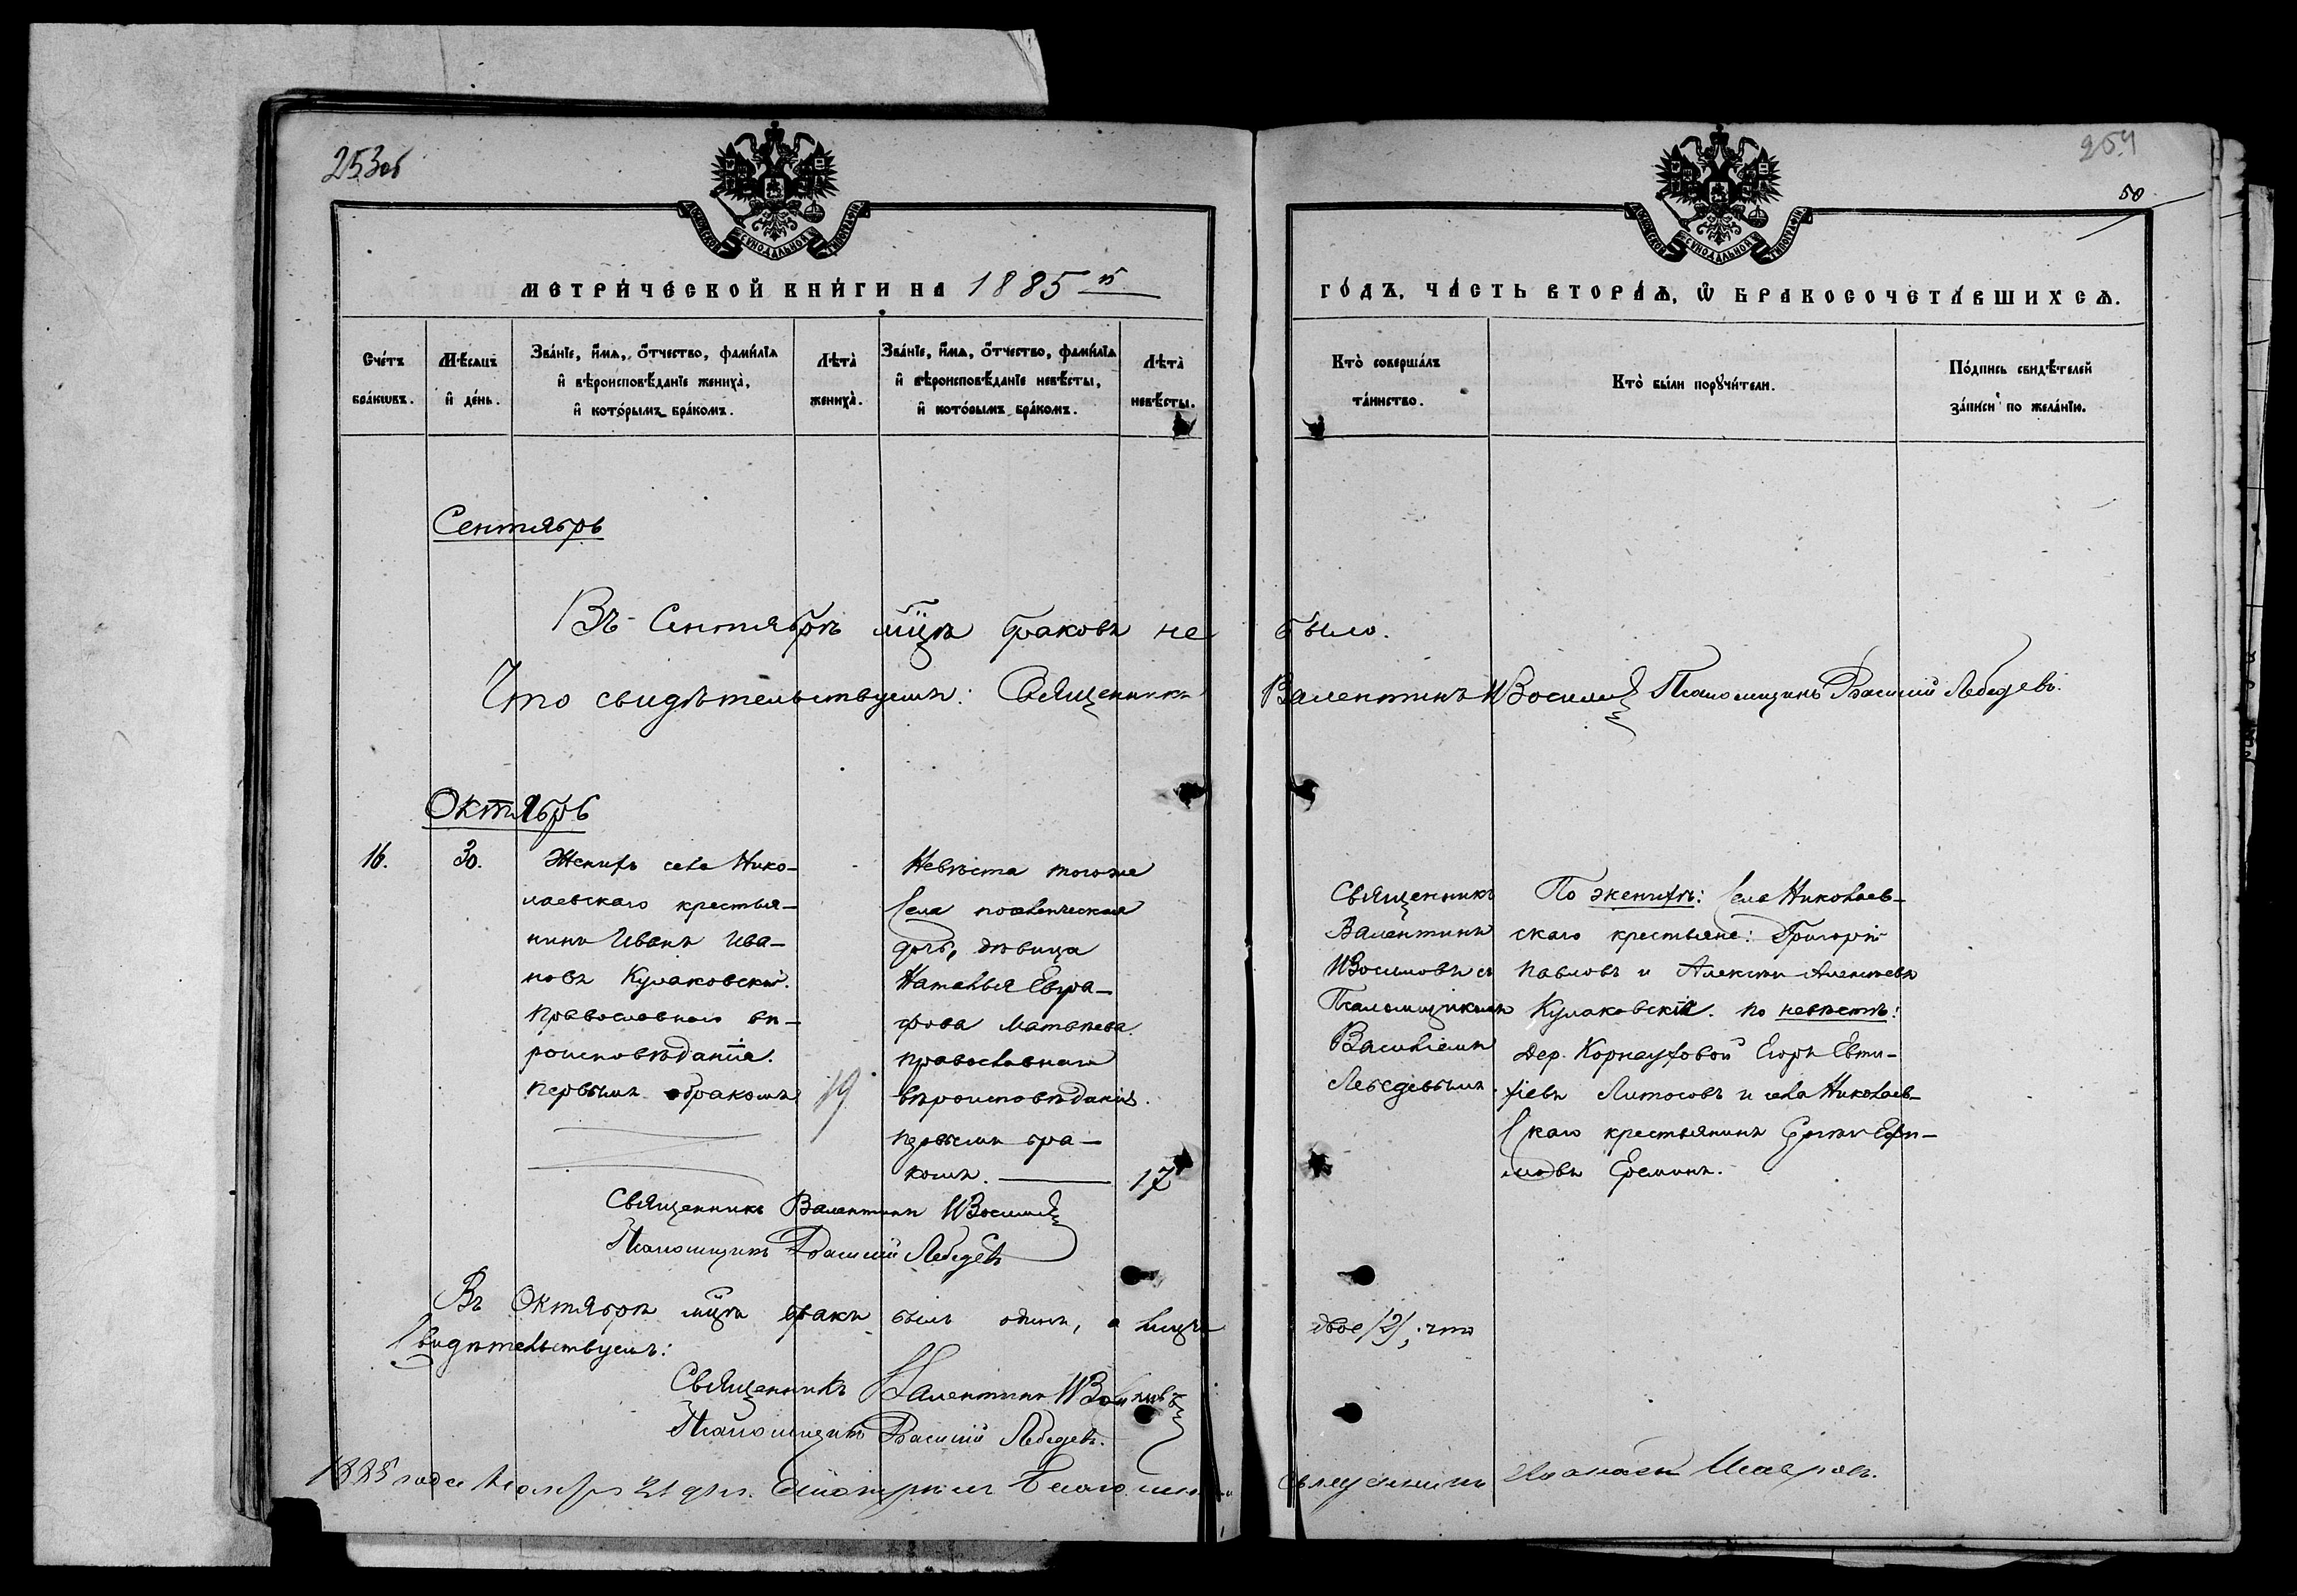 253об
254
50
МОСКОВСКОЙ СѴНОДАЛЬНОЙ ТИПОГРАФІИ
МОСКОВСКОЙ СѴНОДАЛЬНОЙ ТИПОГРАФІИ
МЕТРИ́ЧЕСКОЙ КНИ́ГИ НА 1885 й
ГО́ДЪ, ЧА́СТЬ ВТОРА́Ѧ, Ѿ БРАКОСОЧЕТА́ВШИХСѦ.
Сче́тъ бра́кѡвъ.
Мѣ́сѧцъ и҆ де́нь.
Зва́нїе, и҆́мѧ, ѻ҆́тчество, фами́лїѧ
и҆ вѣроисповѣ́данїе жениха̀,
и҆ кото́рымъ бра́комъ.
Лѣта̀ жениха̀.
Зва́нїе, и҆́мѧ, ѻ҆́тчество, фами́лїѧ
и҆ вѣроисповѣ́данїе невѣ́сты,
и҆ кото́рымъ бра́комъ.
Лѣта̀ невѣ́сты.
Кто̀ соверша́лъ
та́инство.
Кто̀ бы́ли порꙋчи́тели.
По́дпись свидѣ́телей
за́писи по жела́нїю.
Сентябрь
Въ Сентябрѣ мцѣ браковъ не было.
Что свидѣтельствуемъ: Священникъ Валентинъ Псаломщикъ Василій Лебедевъ.
Октябрь
16.
30.
Женихъ села Нико-
лаевскаго крестья-
нинъ Иванъ Ива-
новъ Кулаковскій.
Православнаго вѣ-
роисповѣданія.
первымъ бракомъ
19
Невѣста тогоже
села
дочь, дѣвица
Наталья Евгра-
фова Матвѣева.
православнаго
вѣроисповѣданія.
первымъ бра-
комъ.
17
Священникъ
Валентинъ
съ
Псаломщикомъ
Василіемъ
Лебедевымъ.
По женихѣ: села Николаев-
скаго крестьяне: Григорій
Павловъ и Алексѣй Алексѣевъ
Кулаковскіе. по невѣстѣ:
Дер. Корнауховой Егоръ Евти-
хіевъ и села Николаев-
скаго крестьянинъ Ефи-
мовъ Ереминъ.
Священникъ Валентинъ
Псаломщикъ Василій Лебедевъ
Въ Октябрѣ мцѣ бракъ былъ одинъ, а лицъ двое /2/, что
свидѣтельствуемъ:
Священникъ Валентинъ
Псаломщикъ Василій Лебедевъ.
1885 года Ноября 21 дня. Священникъ